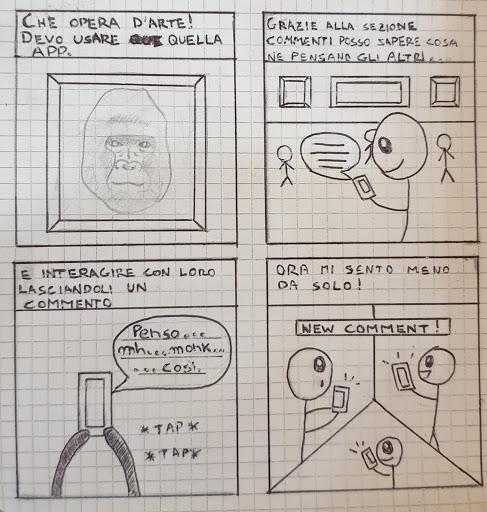 CHE OPERA D'ARTE!
DEVO USARE QUELLA
APP.
GRAZIE ALLA SEZIONE
COMMENTI POSSO SAPERE COSA
NE PENSANO GLI ALTRI....
E INTERAGIRE CON LORO
LASCIANDOLI UN
COMMENTO
Penso...
mh... monk...
...così.
*TAP*
*TAP*
ORA MI SENTO MENO
DA SOLO!
NEW COMMENT!